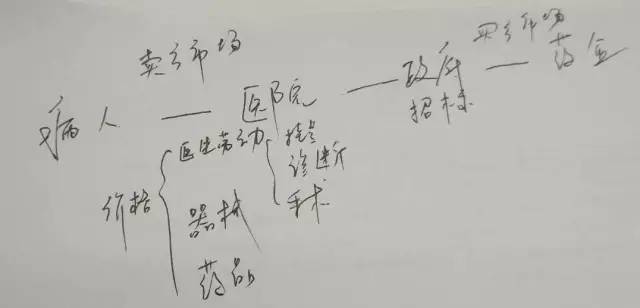 卖方市场
买方市场
病人 — 医院 — 政府 — 药企
招标
医生劳动 { 挂号
诊断
手术
价格 {
器械
药品